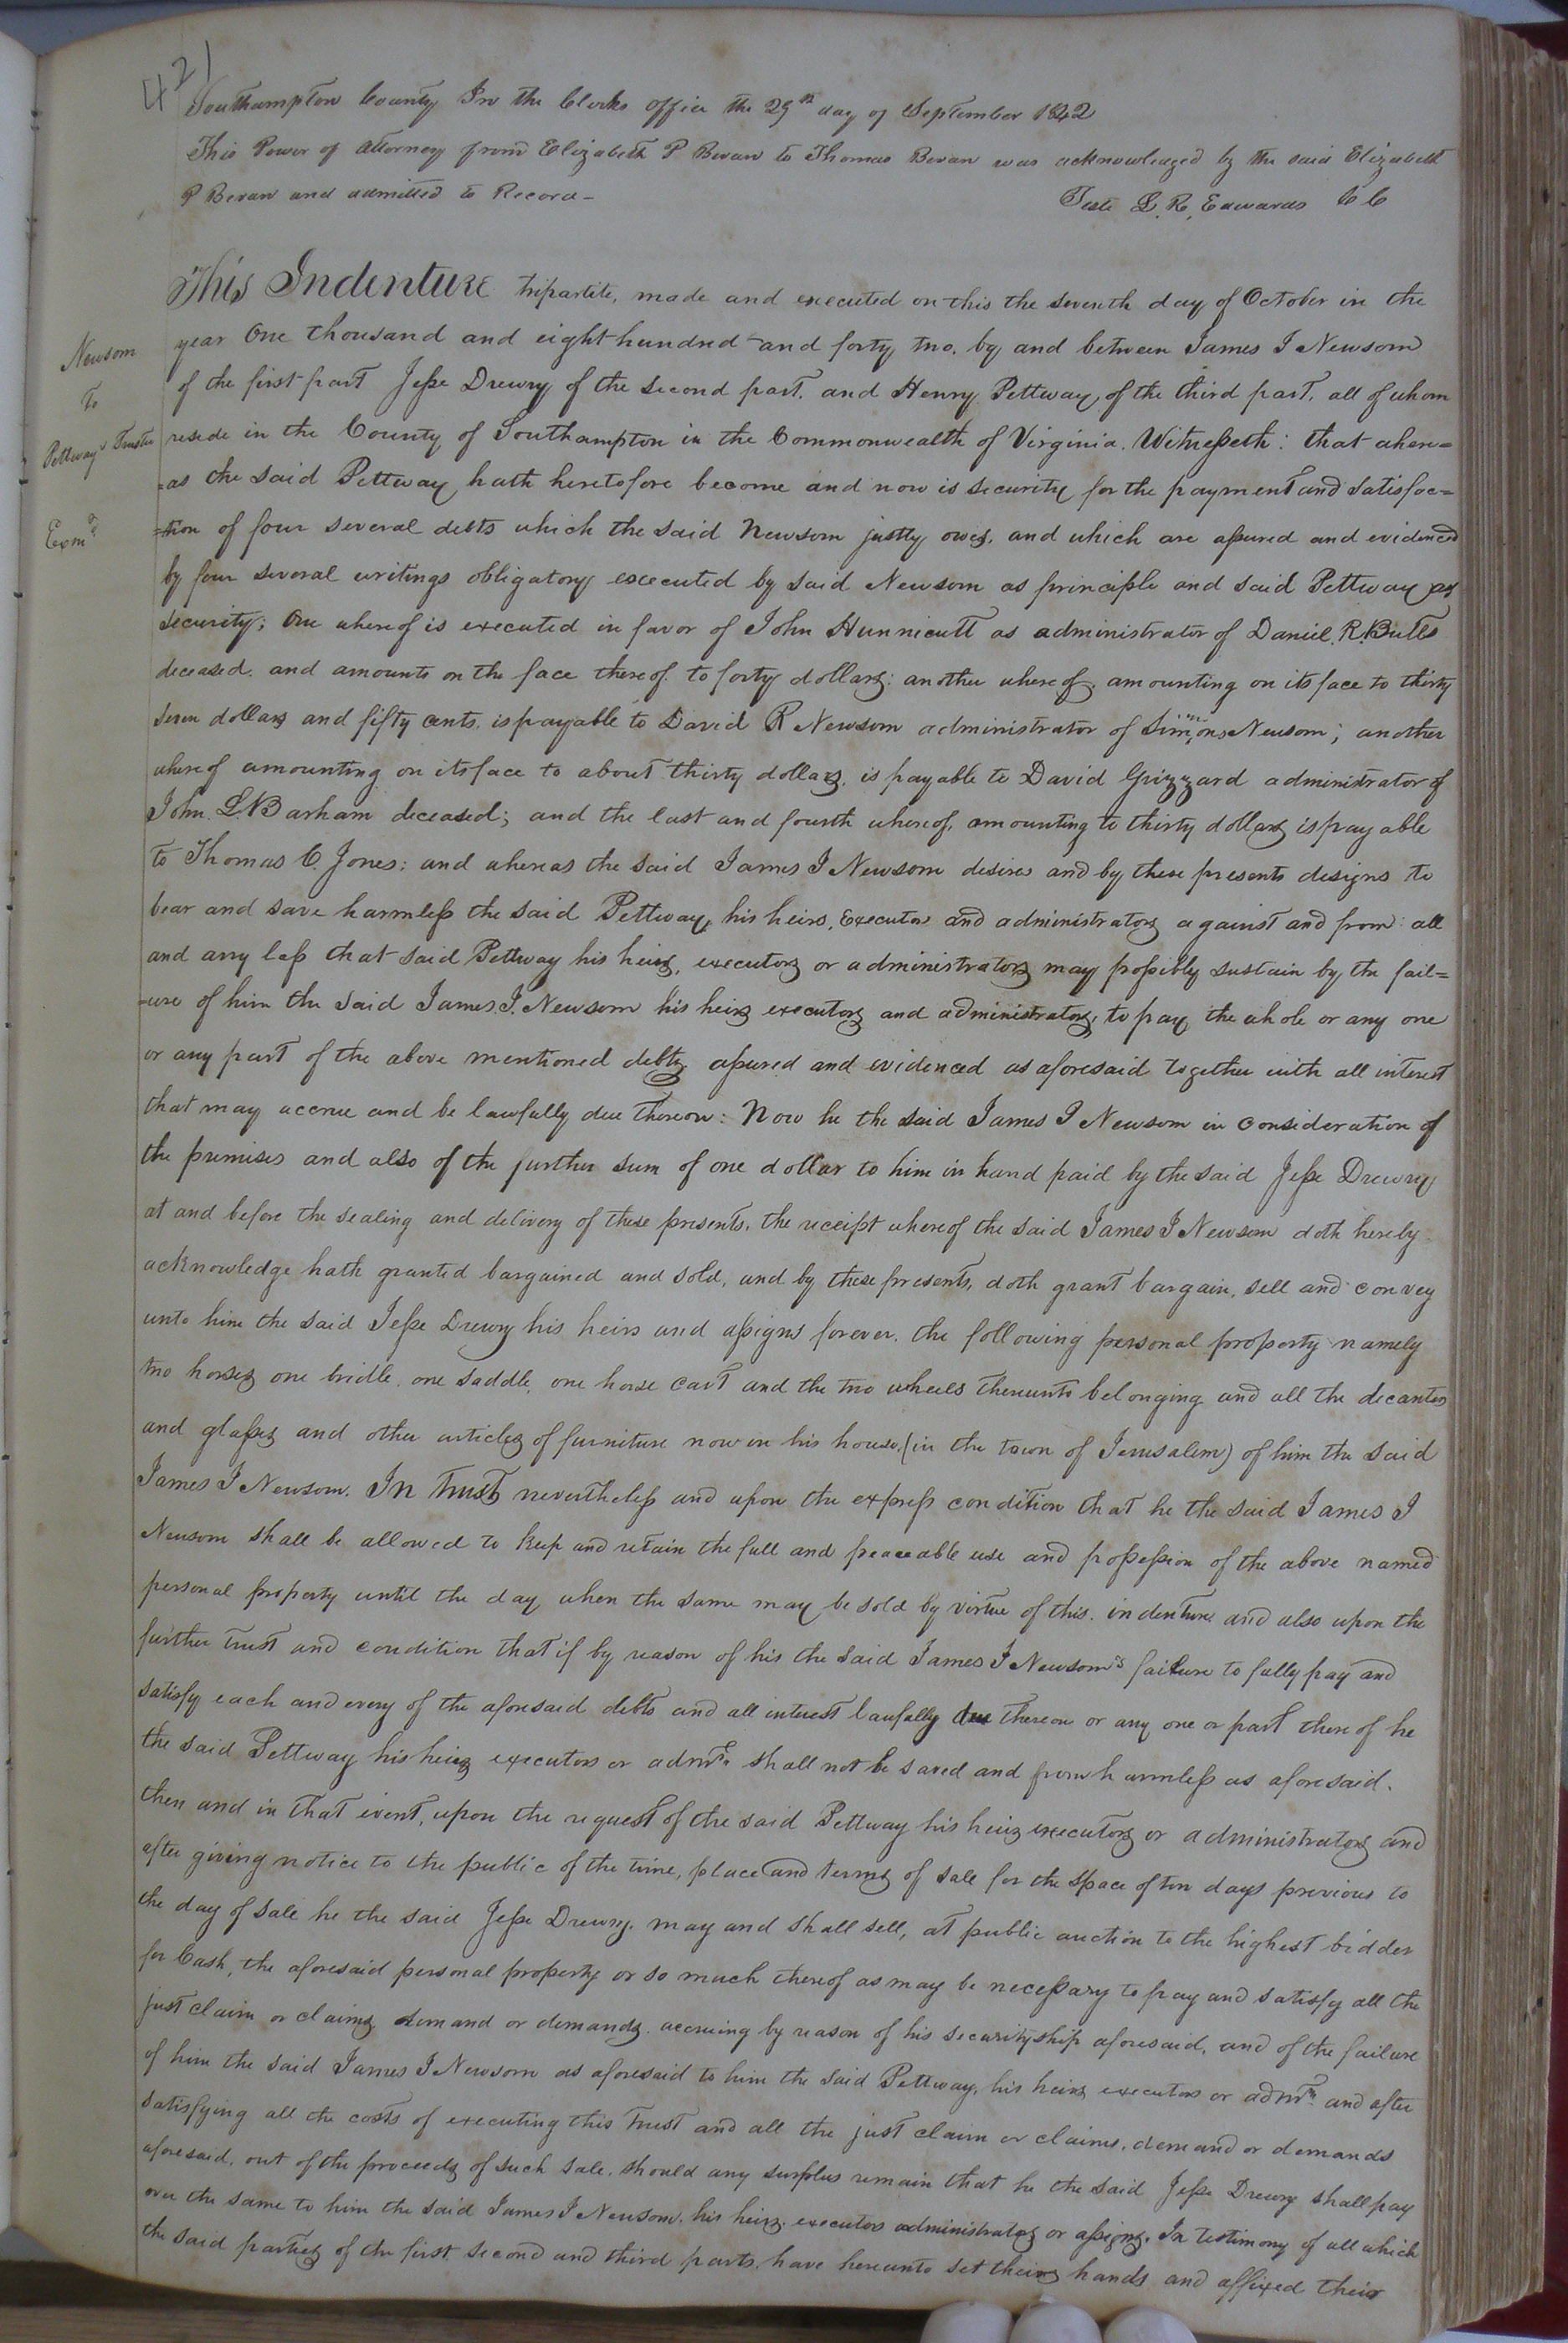 421
Southampton County In the Clerks office the 29th day of September 1842
This Power of Attorney from Elizabeth P Bevan to Thomas Bevan was acknowledged by the said Elizabeth
P Bevan and admitted to Record-
Teste L. R. Edwards CC
This Indenture tripartite, made and executed on this the seventh day of October in the
year One thousand and eight hundred and forty two, by and between James I Newsom
of the first part Jesse Drewry of the second part, and Henry Pettway of the third part, all of whom
reside in the County of Southampton in the Commonwealth of Virginia. Witnesseth: that where=
=as the said Pettway hath heretofore become and now is security for the payment and satisfac=
=tion of four several debts which the said Newsom justly owes, and which are assured and evidenced
by four several writings obligatory executed by said Newsom as principle and said Pettway as
security; One whereof is executed in favor of John Hunnicutt as administrator of Daniel R. Butts
deceased. and amounts on the face thereof to forty dollars: another whereof, amounting on its face to thirty
seven dollars and fifty cents, is payable to David R Newsom administrator of Simmons Newsom; another
whereof amounting on its face to about thirty dollars, is payable to David Grizzard administrator of
John L. Barham deceased; and the last and fourth whereof, amounting to thirty dollars is payable
to Thomas C. Jones: and whereas the said James I Newsom desires and by these presents designs to
bear and save harmless the said Pettway, his heirs, Executors and administrators against and from all
and any loss that said Pettway his heirs, executors or administrators may possibly sustain by the fail=
=ure of him the said James I. Newsom his heirs executors and administrators, to pay the whole or any one
or any part of the above mentioned debts assured and evidenced as aforesaid together with all interest
that may accrue and be lawfully due thereon: Now he the said James I Newsom in consideration of
the premises and also of the further sum of one dollar to him in hand paid by the said Jesse Drewry
at and before the sealing and delivery of these presents, the receipt whereof the said James I Newsom doth hereby
acknowledge hath granted bargained and sold, and by these presents, doth grant bargain, sell and convey
unto him the said Jesse Drewry his heirs and assigns forever, the following personal property namely
two horses one bridle, one saddle, one horse cart and the two wheels thereunto belonging and all the decanters
and glasses and other articles of furniture now in his house, (in the town of Jerusalem) of him the said
James I Newsom. In Trust nevertheless and upon the express condition that he the said James I
Newsom shall be allowed to keep and retain the full and peaceable use and possession of the above named
personal property until the day when the same may be sold by virtue of this indenture and also upon the
further trust and condition that if by reason of his the said James I Newsom's failure to fully pay and
satisfy each and every of the aforesaid debts and all interest lawfully due thereon or any one or part thereof he
the said Pettway his heirs executors or admrs. shall not be saved and from harmless as aforesaid.
then and in that event, upon the request of the said Pettway his heirs executors or administrators and
after giving notice to the public of the time, place and terms of sale for the space of ten days previous to
the day of sale he the said Jesse Drewry. may and shall sell, at public auction to the highest bidder
for Cash, the aforesaid personal property or so much thereof as may be necessary to pay and satisfy all the
just claim or claims demand or demands accruing by reason of his securityship aforesaid, and of the failure
of him the said James I Newsom as aforesaid to him the said Pettway, his heirs executors or admrs. and after
satisfying all the costs of executing this trust and all the just claim or claims, demand or demands
aforesaid, out of the proceeds of such sale, should any surplus remain that he the said Jesse Drewry shall pay
over the same to him the said James I Newsom, his heirs, executors administrators or assigns. In testimony of all which
the said parties of the first, second and third parts, have hereunto set their hands and affixed their
Newsom
To
Pettway's Trustee
Exmd